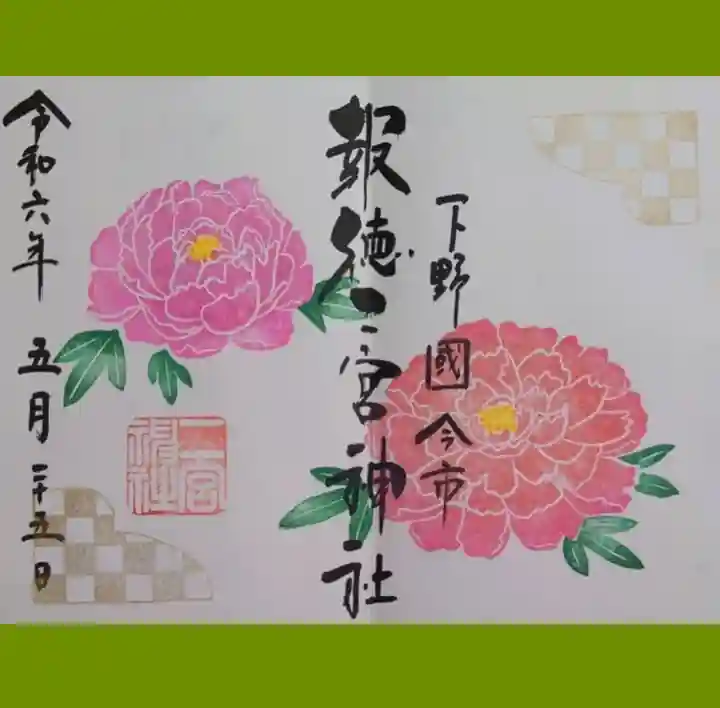 下野國今市
報徳二宮神社
令和六年 五月二十五日
二宮神社